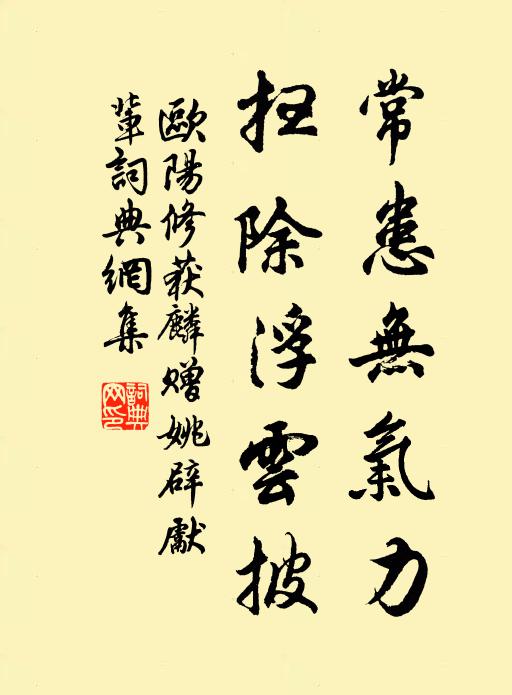 常患無氣力
掃除浮雲披
歐陽修获麟贈姚辟獻
輩詞典網集
詞典网印